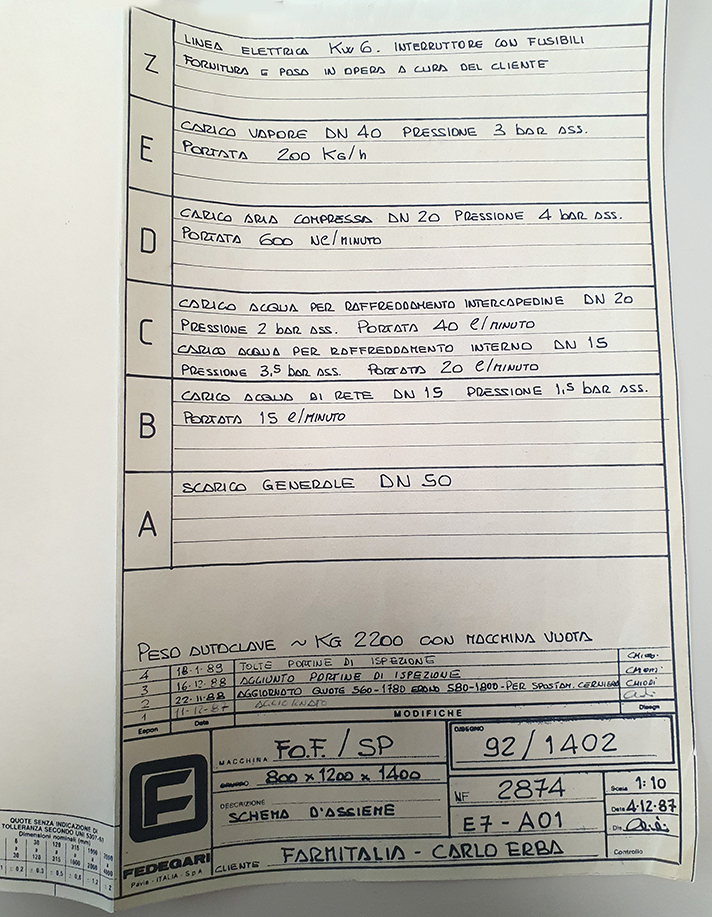 Z
LINEA ELETTRICA KW 6. INTERRUTTORE CON FUSIBILI
FORNITURA E POSA IN OPERA A CURA DEL CLIENTE
E
CARICO VAPORE DN 40 PRESSIONE 3 bar ASS.
PORTATA 200 KG/h
D
CARICO ARIA COMPRESSA DN 20 PRESSIONE 4 bar ASS.
PORTATA 600 Nl/MINUTO
C
CARICO ACQUA PER RAFFREDDAMENTO INTERCAPEDINE DN 20
PRESSIONE 2 bar ASS. PORTATA 40 l/MINUTO
CARICO ACQUA PER RAFFREDDAMENTO INTERNO DN 15
PRESSIONE 3,5 bar ASS. PORTATA 20 l/MINUTO
B
CARICO ACQUA DI RETE DN 15 PRESSIONE 1,5 bar ASS.
PORTATA 15 l/MINUTO
A
SCARICO GENERALE DN 50
PESO AUTOCLAVE ~ KG 2200 CON MACCHINA VUOTA
4 18-1-89 TOLTE PORTINE DI ISPEZIONE
3 16-12-88 AGGIUNTO PORTINE DI ISPEZIONE CHIODI
2 22-11-88 AGGIORNATO QUOTE 560-1780 ERANO 580-1800-PER SPOSTAM. CERNIERA CHIODI
1 11-12-87 AGGIORNATO
Espon Data MODIFICHE Disegn
MACCHINA FO.F. / SP
GRUPPO 800 x 1200 x 1400
DESCRIZIONE
SCHEMA D'ASSIEME
DISEGNO
92/1402
NF 2874
E7 - A01
Scala 1:10
Data 4.12.87
Dis.
Controllo
FEDEGARI
Pavia - ITALIA - S.p.A
CLIENTE FARMITALIA - CARLO ERBA
QUOTE SENZA INDICAZIONE DI
TOLLERANZA SECONDO UNI 5307-63
Dimensioni nominali (mm)